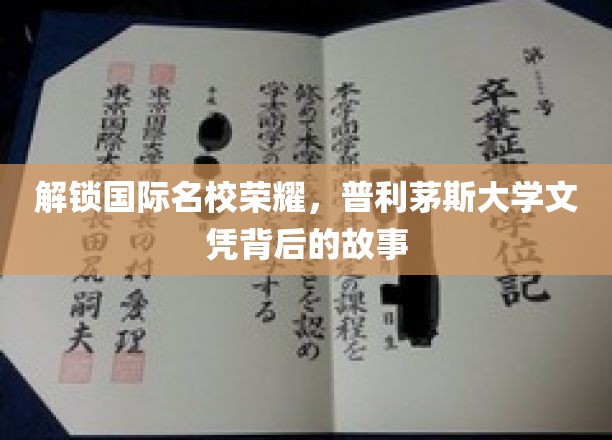 解锁国际名校荣耀，普利茅斯大学文
凭背后的故事
第 号
卒業証 学位記
本学商学部 定の課程を
修めて本学 ことを認め
学士(商学)の学 する
平成
東京国際大学商 長田村愛理
東京国際大 長田尻嗣夫